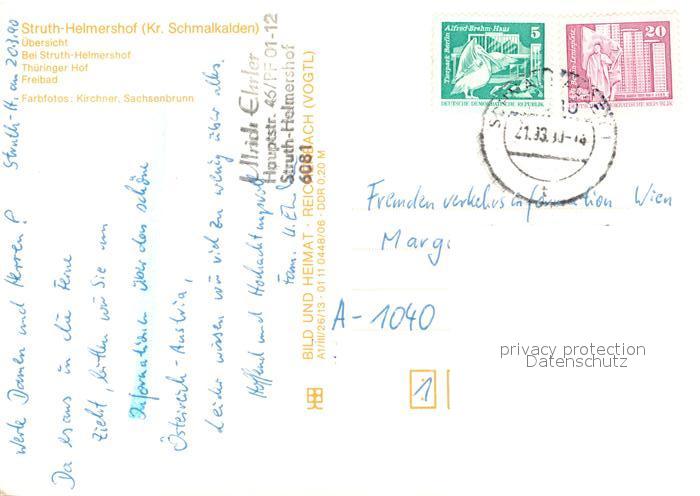 Struth-Helmershof (Kr. Schmalkalden)
Übersicht
Bei Struth-Helmershof
Thüringer Hof
Freibad
Farbfotos: Kirchner, Sachsenbrunn
Struth-H. am 20.3.90
Werte Damen und Herren!
Da es uns in die Ferne
zieht, bitten wir Sie um
Informationen über das schöne
Österreich-Austria,
Leider wissen wir viel zu wenig über alles.
Hoffend und Hochachtungsvoll
Fam. U. Ehrler
Ulrich Ehrler
Hauptstr. 46/PF 01-12
Struth-Helmershof
6081
BILD UND HEIMAT · REICHENBACH (VOGTL)
A1/III/26/13 · 01 11 0448/06 · DDR 0,20 M
Alfred-Brehm-Haus
5
Tierpark Berlin
DEUTSCHE DEMOKRATISCHE REPUBLIK
20
DEUTSCHE DEMOKRATISCHE REPUBLIK
21.03.90-18
Fremdenverkehrsinformation Wien
Marg
A-1040
1
privacy protection
Datenschutz